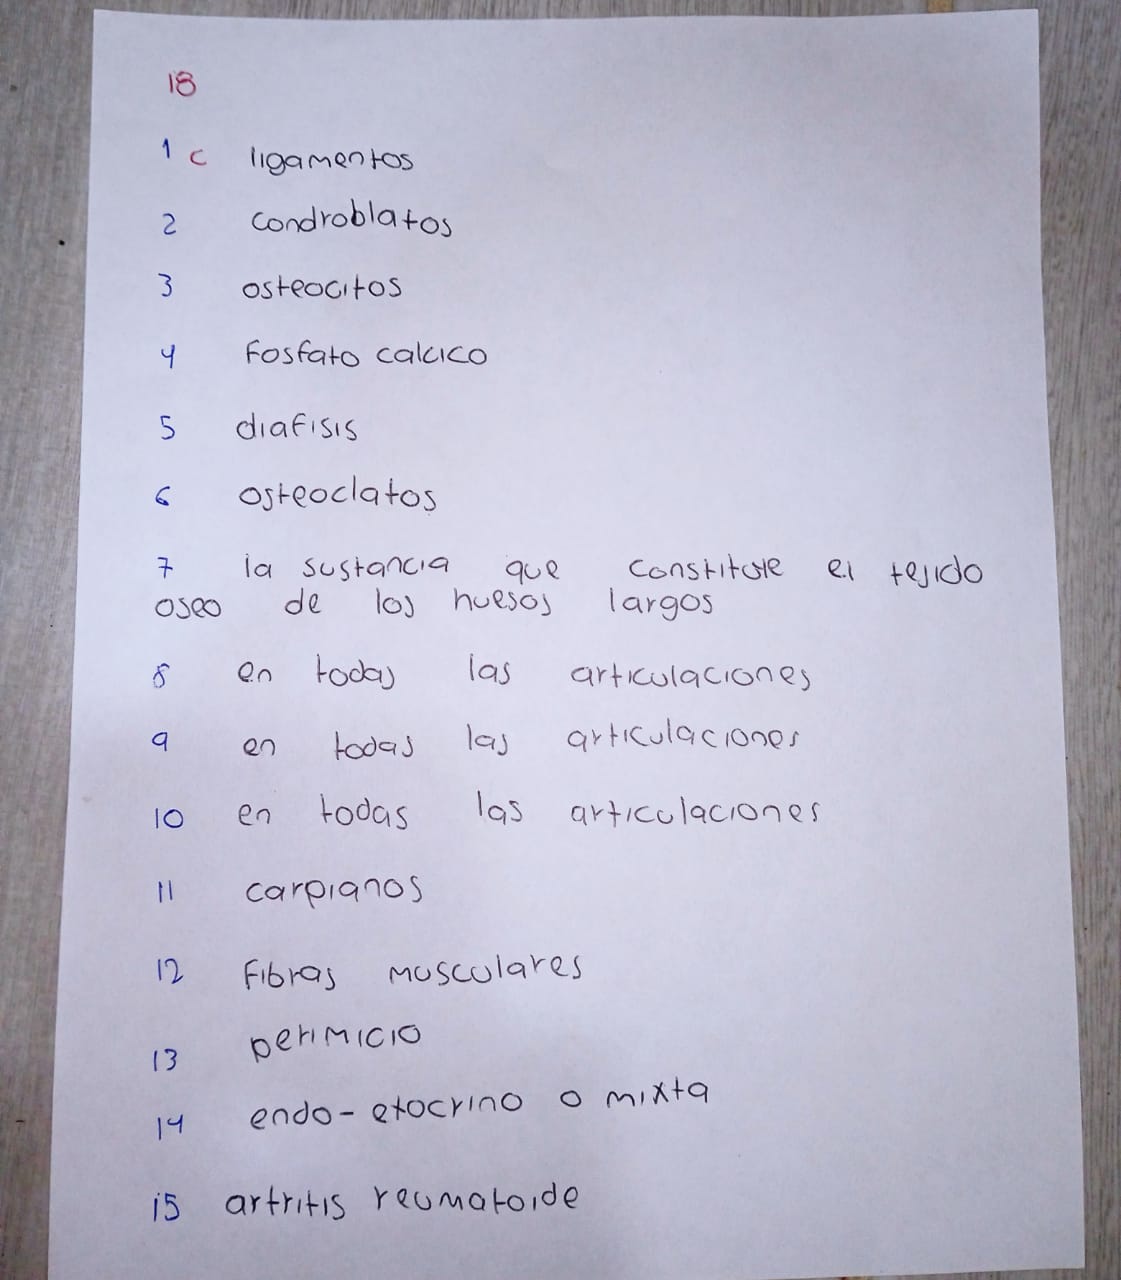 18
1 c ligamentos
2 condroblatos
3 osteocitos
4 fosfato calcico
5 diafisis
6 osteoclatos
7 la sustancia que constitute el tejido
oseo de los huesos largos
8 en todas las articulaciones
9 en todas las articulaciones
10 en todas las articulaciones
11 carpianos
12 fibras musculares
13 perimicio
14 endo-etocrino o mixta
15 artritis reumatoide